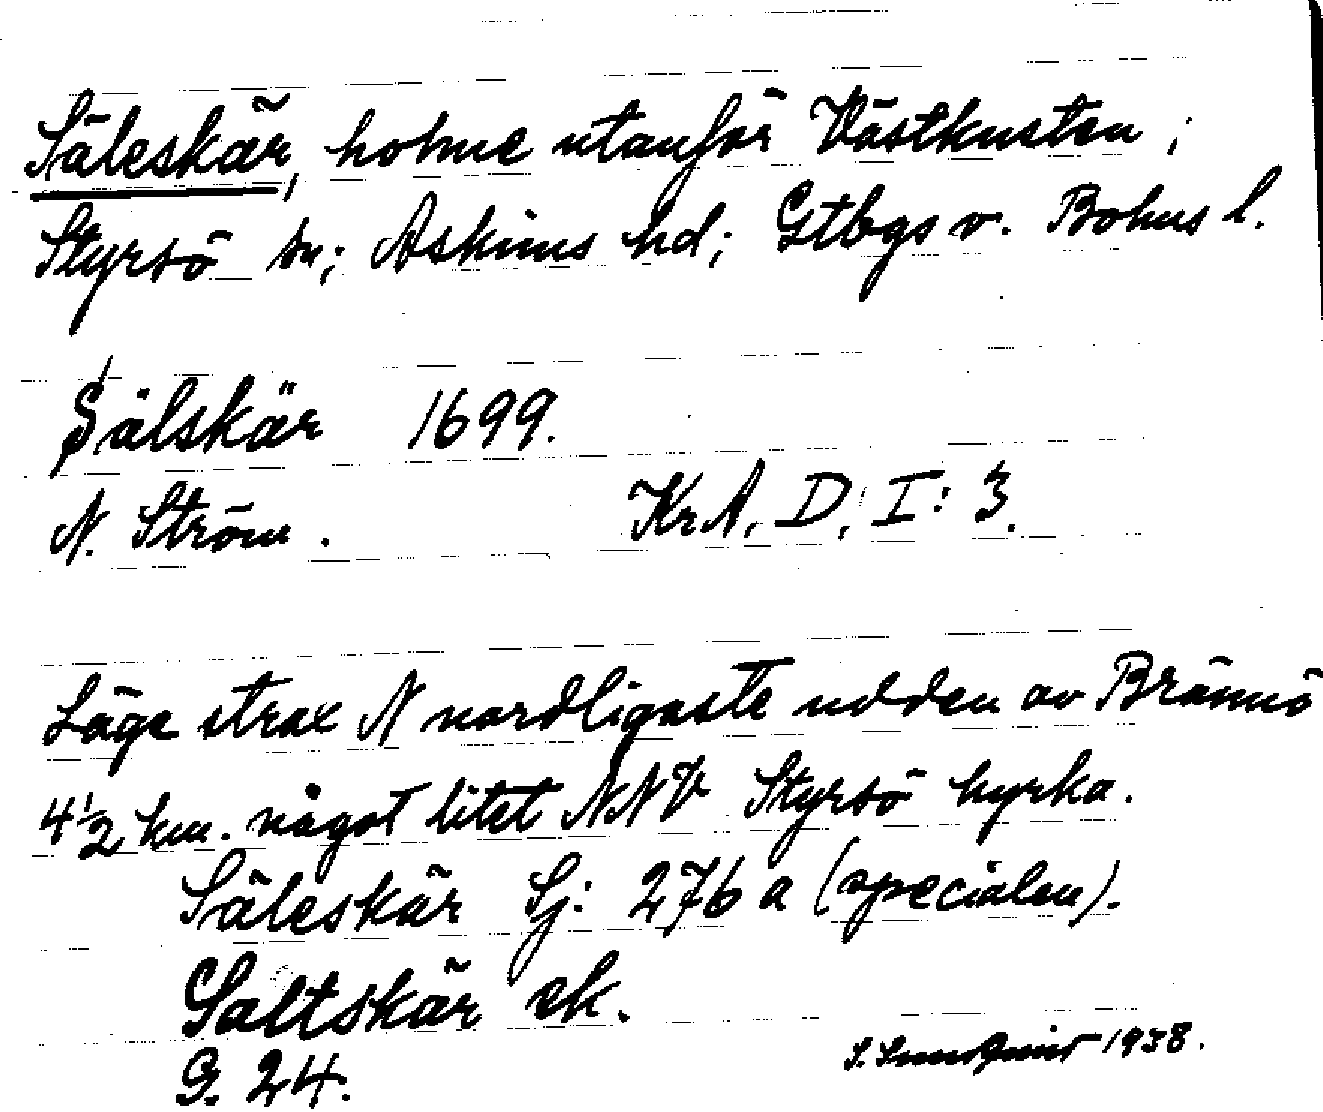 Säleskär, holme utanför Västkusten;
Styrsö sn; Askims hd; Gtbgs o. Bohus l.
Sälskär 1699.
N. Ström. KrA, D, I: 3.
Läge strax N nordligaste udden av Brännö
4 1/2 km. något litet NNV Styrsö kyrka.
Säleskär Sj: 276 a (specialen).
Saltskär ek.
G. 24.
S. Sundqvist 1938.